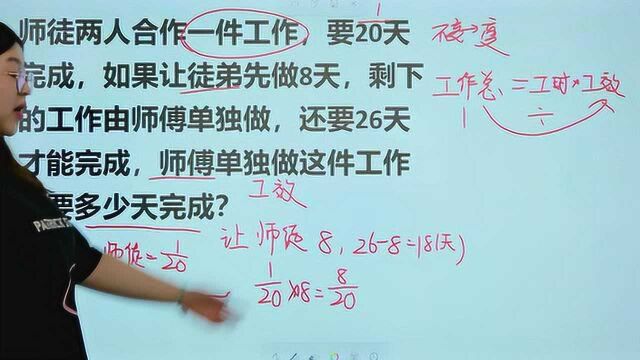 师徒两人合作一件工作，要20天
完成，如果让徒弟先做8天，剩下
的工作由师傅单独做，还要26天
才能完成，师傅单独做这件工作
要多少天完成？
1
工作总 = 工时×工效
1
÷
工效
师徒=1/20
让 师徒 8，26-8=18(天)
1/20 ×8 = 8/20